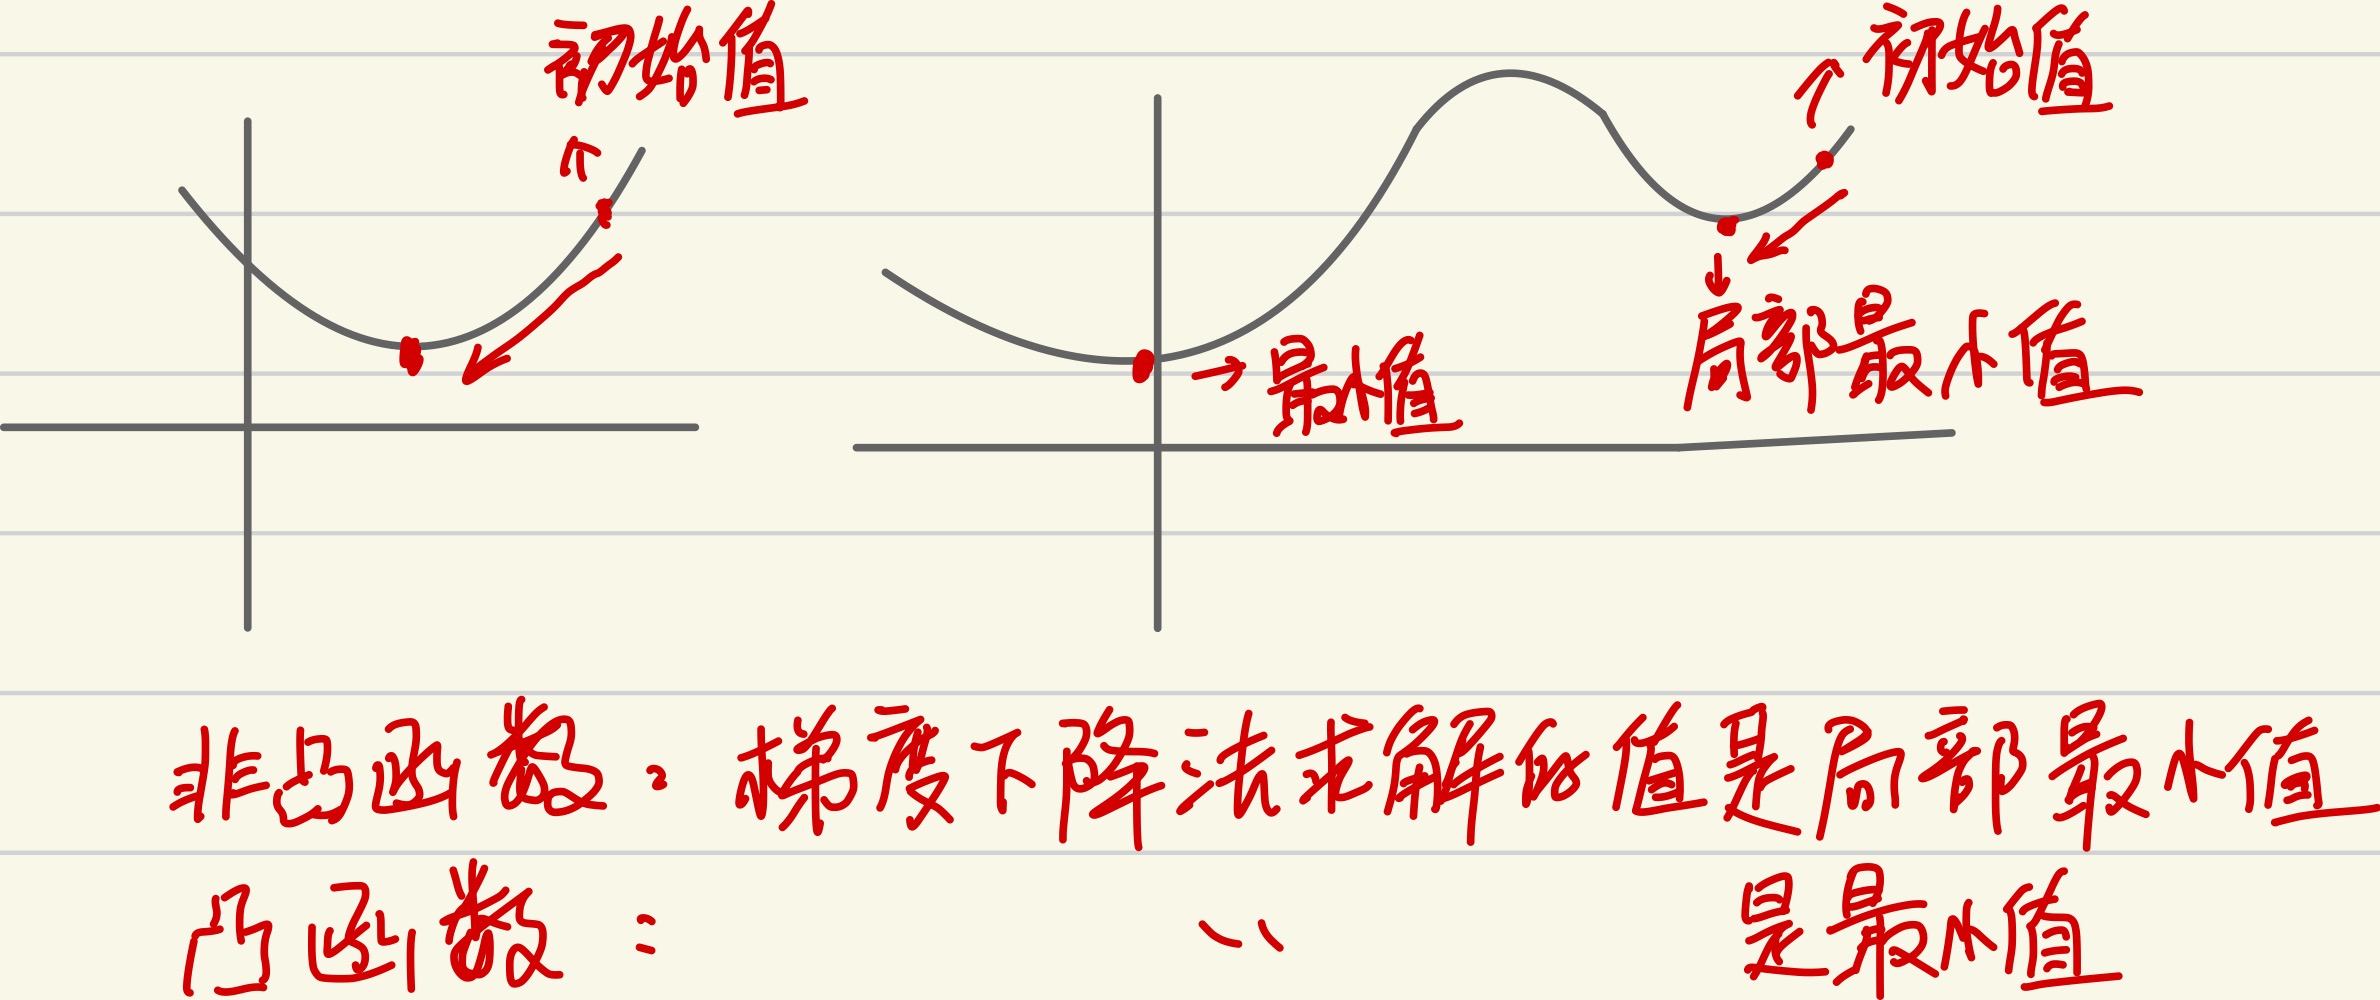 初始值
初始值
→ 最小值
局部最小值
非凸函数: 梯度下降法求解的值是局部最小值
凸函数: 〃 是最小值